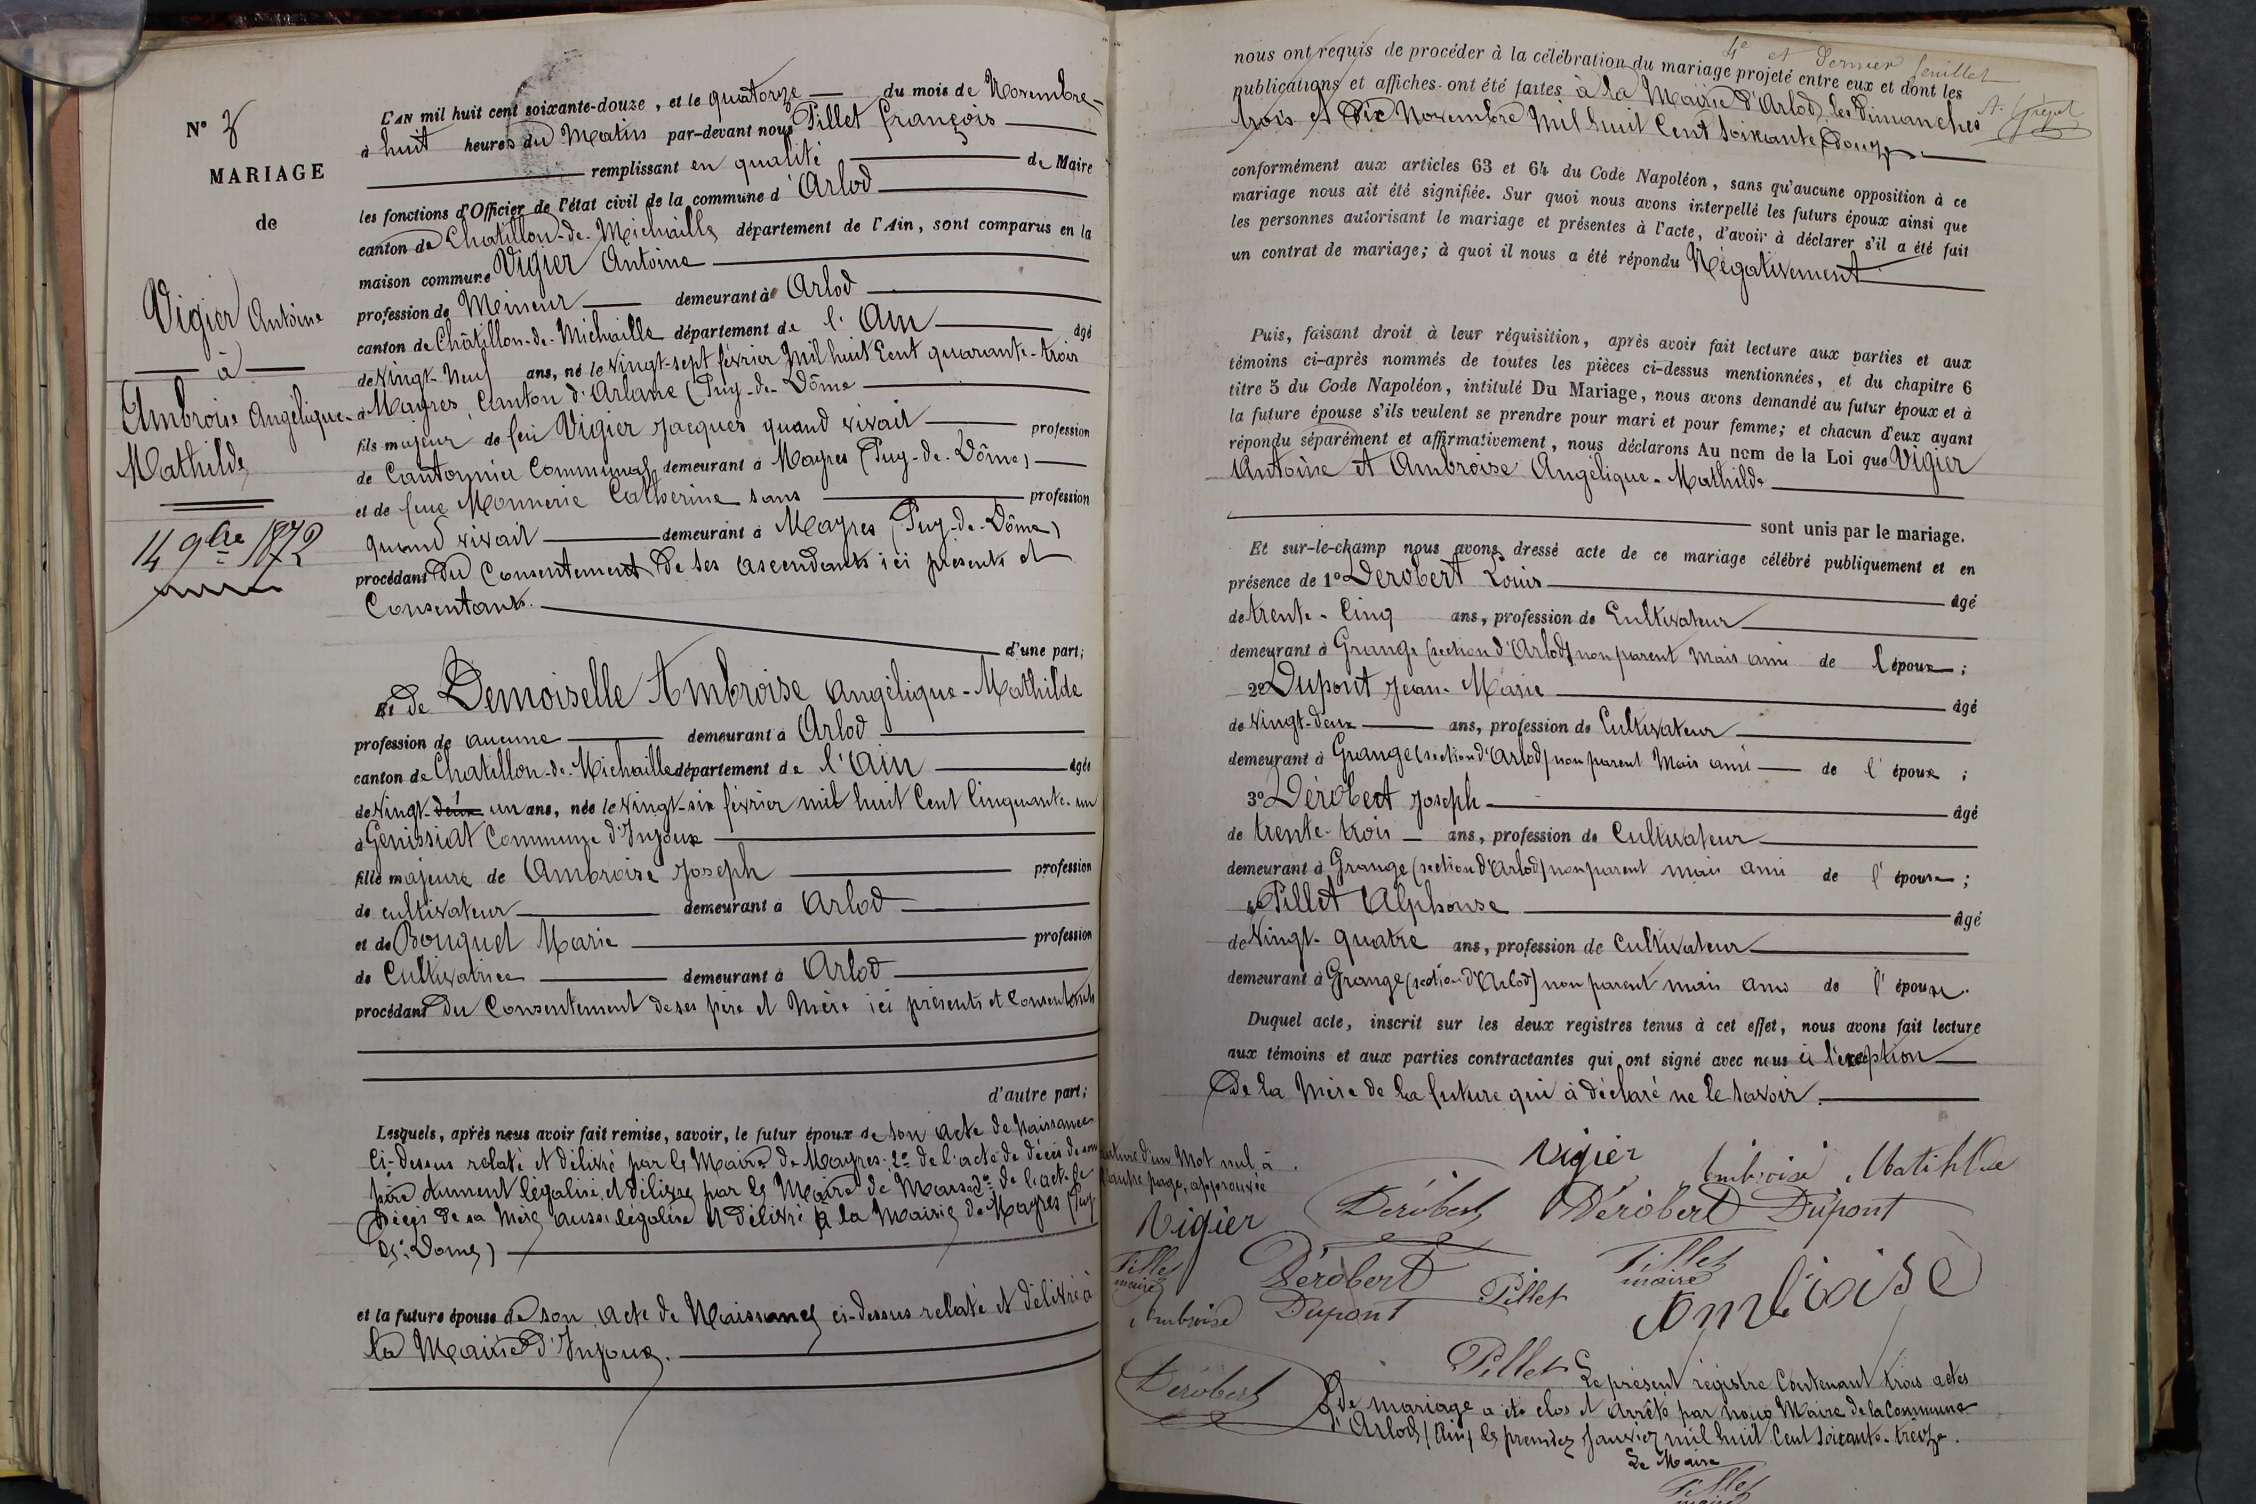 N° 3
MARIAGE
de
Vigier Antoine
à
Ambroise Angélique-
Mathilde
14 9bre 1872
L'AN mil huit cent soixante-douze, et le quatorze du mois de Novembre
à huit heures du Matin par-devant nous Pillet François
remplissant en qualité de Maire
les fonctions d'Officier de l'état civil de la commune d'Arlod
canton de Chatillon-de-Michaille département de l'Ain, sont comparus en la
maison commune Vigier Antoine
profession de Meineur demeurant à Arlod
canton de Châtillon-de-Michaille département de l'Ain âgé
de Vingt-Neuf ans, né le Vingt-sept février mil huit Cent quarante-trois
à Mayres, Canton d'Arlanc (Puy-de-Dôme
fils majeur de feu Vigier Jacques quand vivait profession
de Cantonnier Communal demeurant à Mayres (Puy-de-Dôme)
et de feue Monnerie Catherine sans profession
quand vivait demeurant à Mayres (Puy-de-Dôme)
procédant du Consentement de ses ascendants ici présents et
Consentants.
d'une part;
Et de Demoiselle Ambroise Angélique-Mathilde
profession de aucune demeurant à Arlod
canton de Chatillon-de-Michaille département de l'Ain âgée
de Vingt-deux un ans, née le Vingt-six février mil huit Cent Cinquante-un
à Génissiat Commune d'Injoux
fille majeure de Ambroise Joseph profession
de cultivateur demeurant à Arlod
et de Bouquet Marie profession
de Cultivatrice demeurant à Arlod
procédant du Consentement de ses père et Mère ici présents et Consentants
d'autre part;
Lesquels, après nous avoir fait remise, savoir, le futur époux de son acte de Naissance
Ci-dessus relaté et délivré par le Maire de Mayres. 2° de l'acte de décès de son
père dument légalisé, et délivré par le Maire de 3° de l'acte de
Décès de sa Mère aussi légalisé et délivré à la Mairie de Mayres (Puy
de Dome)
et la future épouse de son acte de Naissance ci-dessus relaté et délivré à
la Mairie d'Injoux.
4e et dernier feuillet
nous ont requis de procéder à la célébration du mariage projeté entre eux et dont les
publications et affiches ont été faites à la Mairie d'Arlod, les Dimanches
trois et Dix Novembre Mil huit Cent soixante douze
conformément aux articles 63 et 64 du Code Napoléon, sans qu'aucune opposition à ce
mariage nous ait été signifiée. Sur quoi nous avons interpellé les futurs époux ainsi que
les personnes autorisant le mariage et présentes à l'acte, d'avoir à déclarer s'il a été fait
un contrat de mariage; à quoi il nous a été répondu Négativement
Puis, faisant droit à leur réquisition, après avoir fait lecture aux parties et aux
témoins ci-après nommés de toutes les pièces ci-dessus mentionnées, et du chapitre 6
titre 5 du Code Napoléon, intitulé Du Mariage, nous avons demandé au futur époux et à
la future épouse s'ils veulent se prendre pour mari et pour femme; et chacun d'eux ayant
répondu séparément et affirmativement, nous déclarons Au nom de la Loi que Vigier
Antoine et Ambroise Angélique-Mathilde
sont unis par le mariage.
Et sur-le-champ nous avons dressé acte de ce mariage célébré publiquement et en
présence de 1° Derobert Louis âgé
de trente-Cinq ans, profession de Cultivateur
demeurant à Grange (section d'Arlod) non parent mais ami de l'époux;
2° Dupont Jean-Marie âgé
de Vingt-deux ans, profession de Cultivateur
demeurant à Grange (section d'Arlod) non parent Mais ami de l'époux;
3° Dérobert Joseph âgé
de trente-trois ans, profession de Cultivateur
demeurant à Grange (section d'Arlod) non parent mais ami de l'épouse;
4° Pillet Alphonse âgé
de Vingt-quatre ans, profession de Cultivateur
demeurant à Grange (section d'Arlod) non parent mais ami de l'épouse.
Duquel acte, inscrit sur les deux registres tenus à cet effet, nous avons fait lecture
aux témoins et aux parties contractantes qui ont signé avec nous à l'exeption
De la Mère de la future qui à déclaré ne le savoir.
d'un Mot nul à
l'autre page, approuvée
Vigier Ambroise Matihlde
Vigier Dérobert Dérobert Dupont
Pillet maire Dérobert Pillet Pillet maire
Ambroise Dupont Ambroise
Dérobert Pillet
Le présent régistre Contenant trois actes
De mariage a été clos et arrêté par nous Maire de la Commune
d'Arlod (Ain) le premier Janvier mil huit Cent soixante-treize.
Le Maire
Pillet
maire